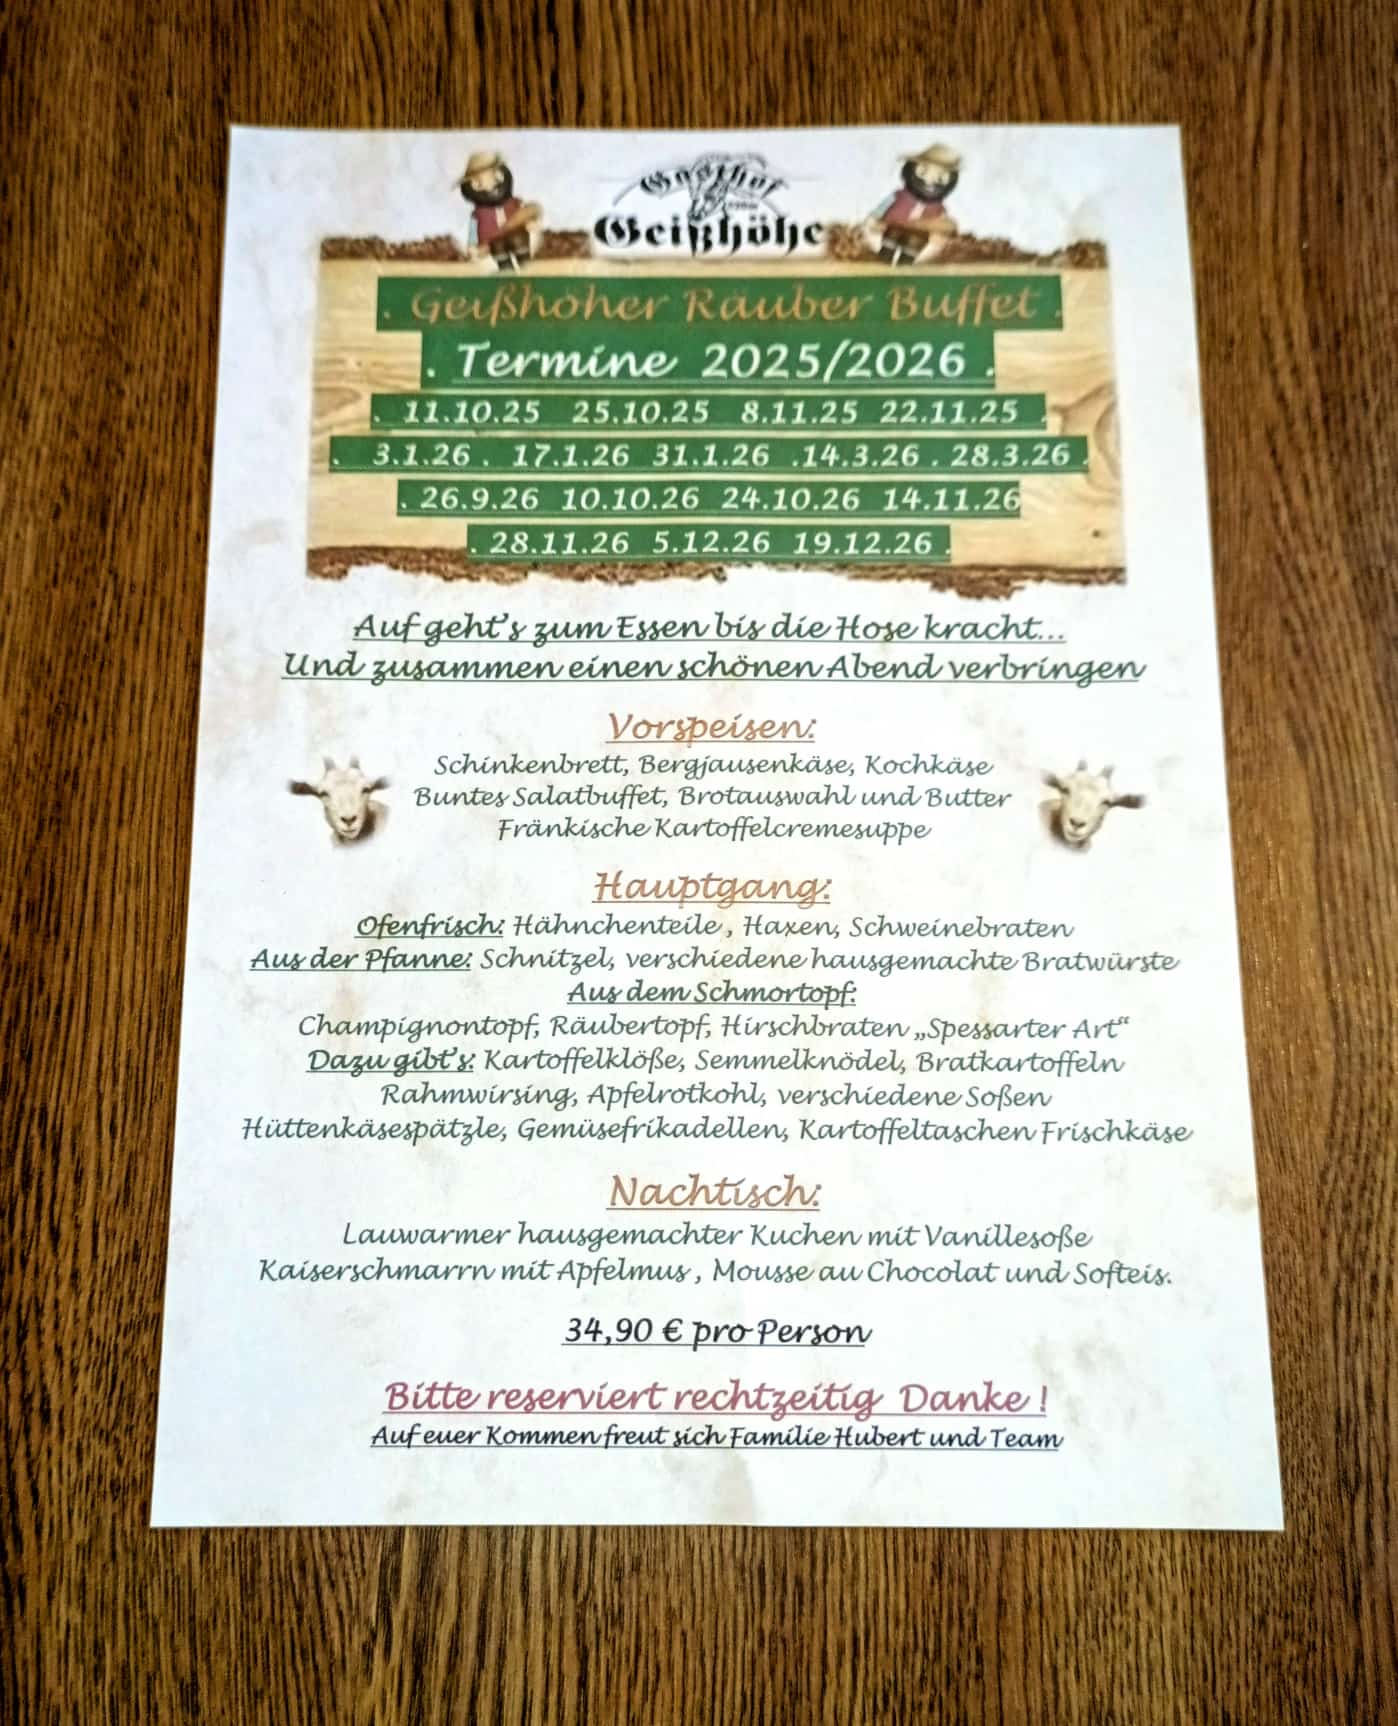 Gasthof
Geißhöhe
. Geißhöher Räuber Buffet .
. Termine 2025/2026 .
. 11.10.25 25.10.25 8.11.25 22.11.25 .
. 3.1.26 . 17.1.26 31.1.26 .14.3.26 . 28.3.26 .
. 26.9.26 10.10.26 24.10.26 14.11.26
. 28.11.26 5.12.26 19.12.26 .
Auf geht's zum Essen bis die Hose kracht...
Und zusammen einen schönen Abend verbringen
Vorspeisen:
Schinkenbrett, Bergjausenkäse, Kochkäse
Buntes Salatbuffet, Brotauswahl und Butter
Fränkische Kartoffelcremesuppe
Hauptgang:
Ofenfrisch: Hähnchenteile , Haxen, Schweinebraten
Aus der Pfanne: Schnitzel, verschiedene hausgemachte Bratwürste
Aus dem Schmortopf:
Champignontopf, Räubertopf, Hirschbraten „Spessarter Art“
Dazu gibt's: Kartoffelklöße, Semmelknödel, Bratkartoffeln
Rahmwirsing, Apfelrotkohl, verschiedene Soßen
Hüttenkäsespätzle, Gemüsefrikadellen, Kartoffeltaschen Frischkäse
Nachtisch:
Lauwarmer hausgemachter Kuchen mit Vanillesoße
Kaiserschmarrn mit Apfelmus , Mousse au Chocolat und Softeis.
34,90 € pro Person
Bitte reserviert rechtzeitig Danke !
Auf euer Kommen freut sich Familie Hubert und Team